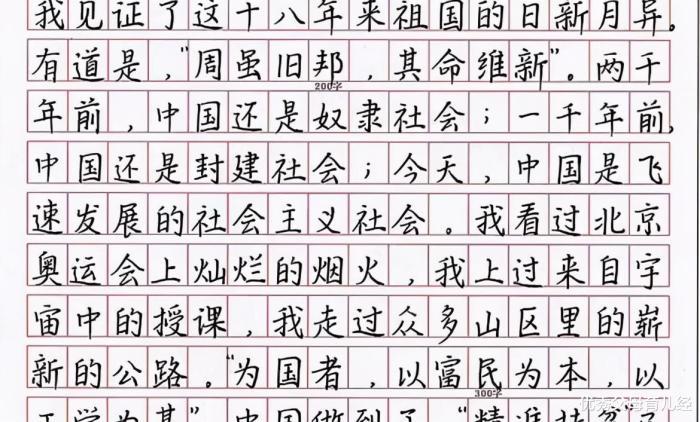 我见证了这十八年来祖国的日新月异。
有道是，“周虽旧邦，其命维新”。两千
200字
年前，中国还是奴隶社会；一千年前，
中国还是封建社会；今天，中国是飞
速发展的社会主义社会。我看过北京
奥运会上灿烂的烟火，我上过来自宇
宙中的授课，我走过众多山区里的崭
新的公路。“为国者，以富民为本，以
300字
正学为基”，中国做到了“精准扶贫”
优秀父母育儿经